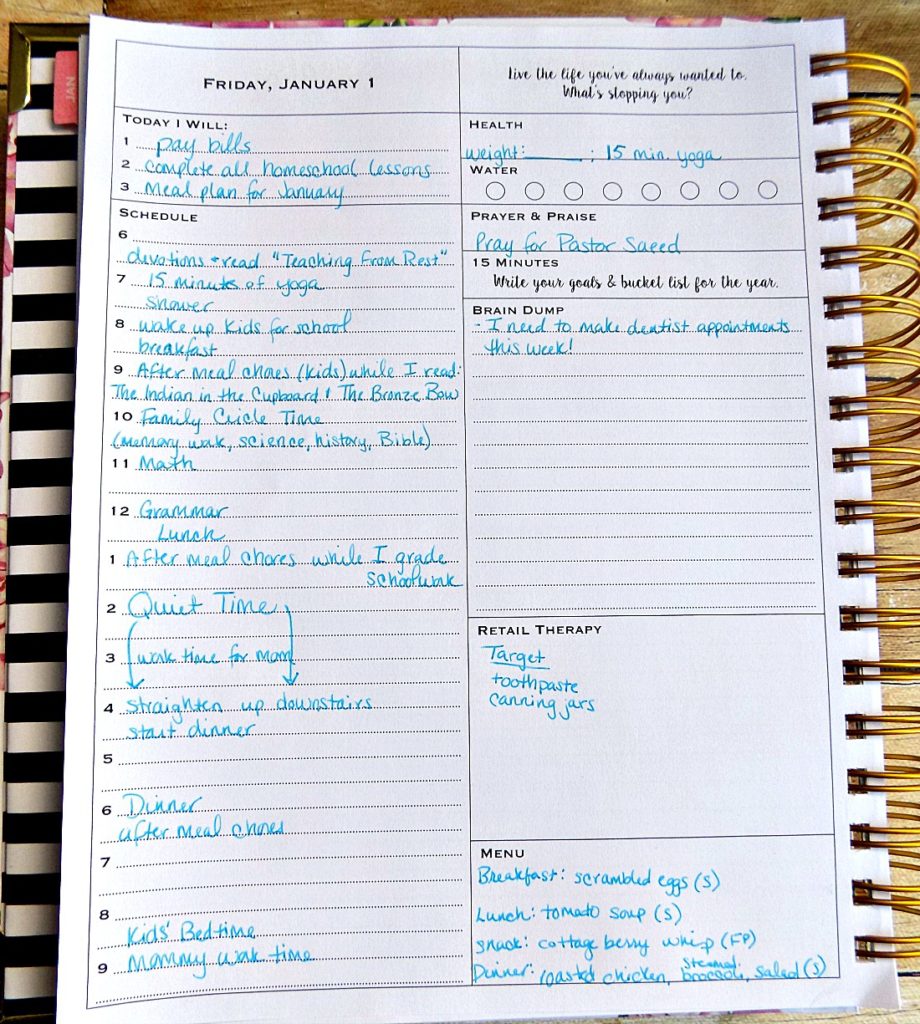 JAN
FRIDAY, JANUARY 1
Live the life you've always wanted to.
What's stopping you?
TODAY I WILL:
1 pay bills
2 complete all homeschool lessons
3 Meal plan for January
HEALTH
weight: ______ ; 15 min. yoga
WATER
PRAYER & PRAISE
Pray for Pastor Saeed
15 MINUTES
Write your goals & bucket list for the year.
SCHEDULE
6
devotions + read "Teaching From Rest"
7 15 minutes of yoga
Shower
8 wake up kids for school
breakfast
9 After meal chores (kids) while I read:
The Indian in the Cupboard & The Bronze Bow
10 Family Circle Time
(memory work, science, history, Bible)
11 Math
12 Grammar
Lunch
1 After meal chores while I grade
schoolwork
2 Quiet Time
3 work time for mom
4 Straighten up downstairs
start dinner
5
6 Dinner
after meal chores
7
8
Kids' Bedtime
9 Mommy work time
BRAIN DUMP
- I need to make dentist appointments
this week!
RETAIL THERAPY
Target
toothpaste
canning jars
MENU
Breakfast: scrambled eggs (S)
Lunch: tomato soup (S)
snack: cottage berry whip (FP)
Dinner: roasted chicken, steamed broccoli, salad (S)